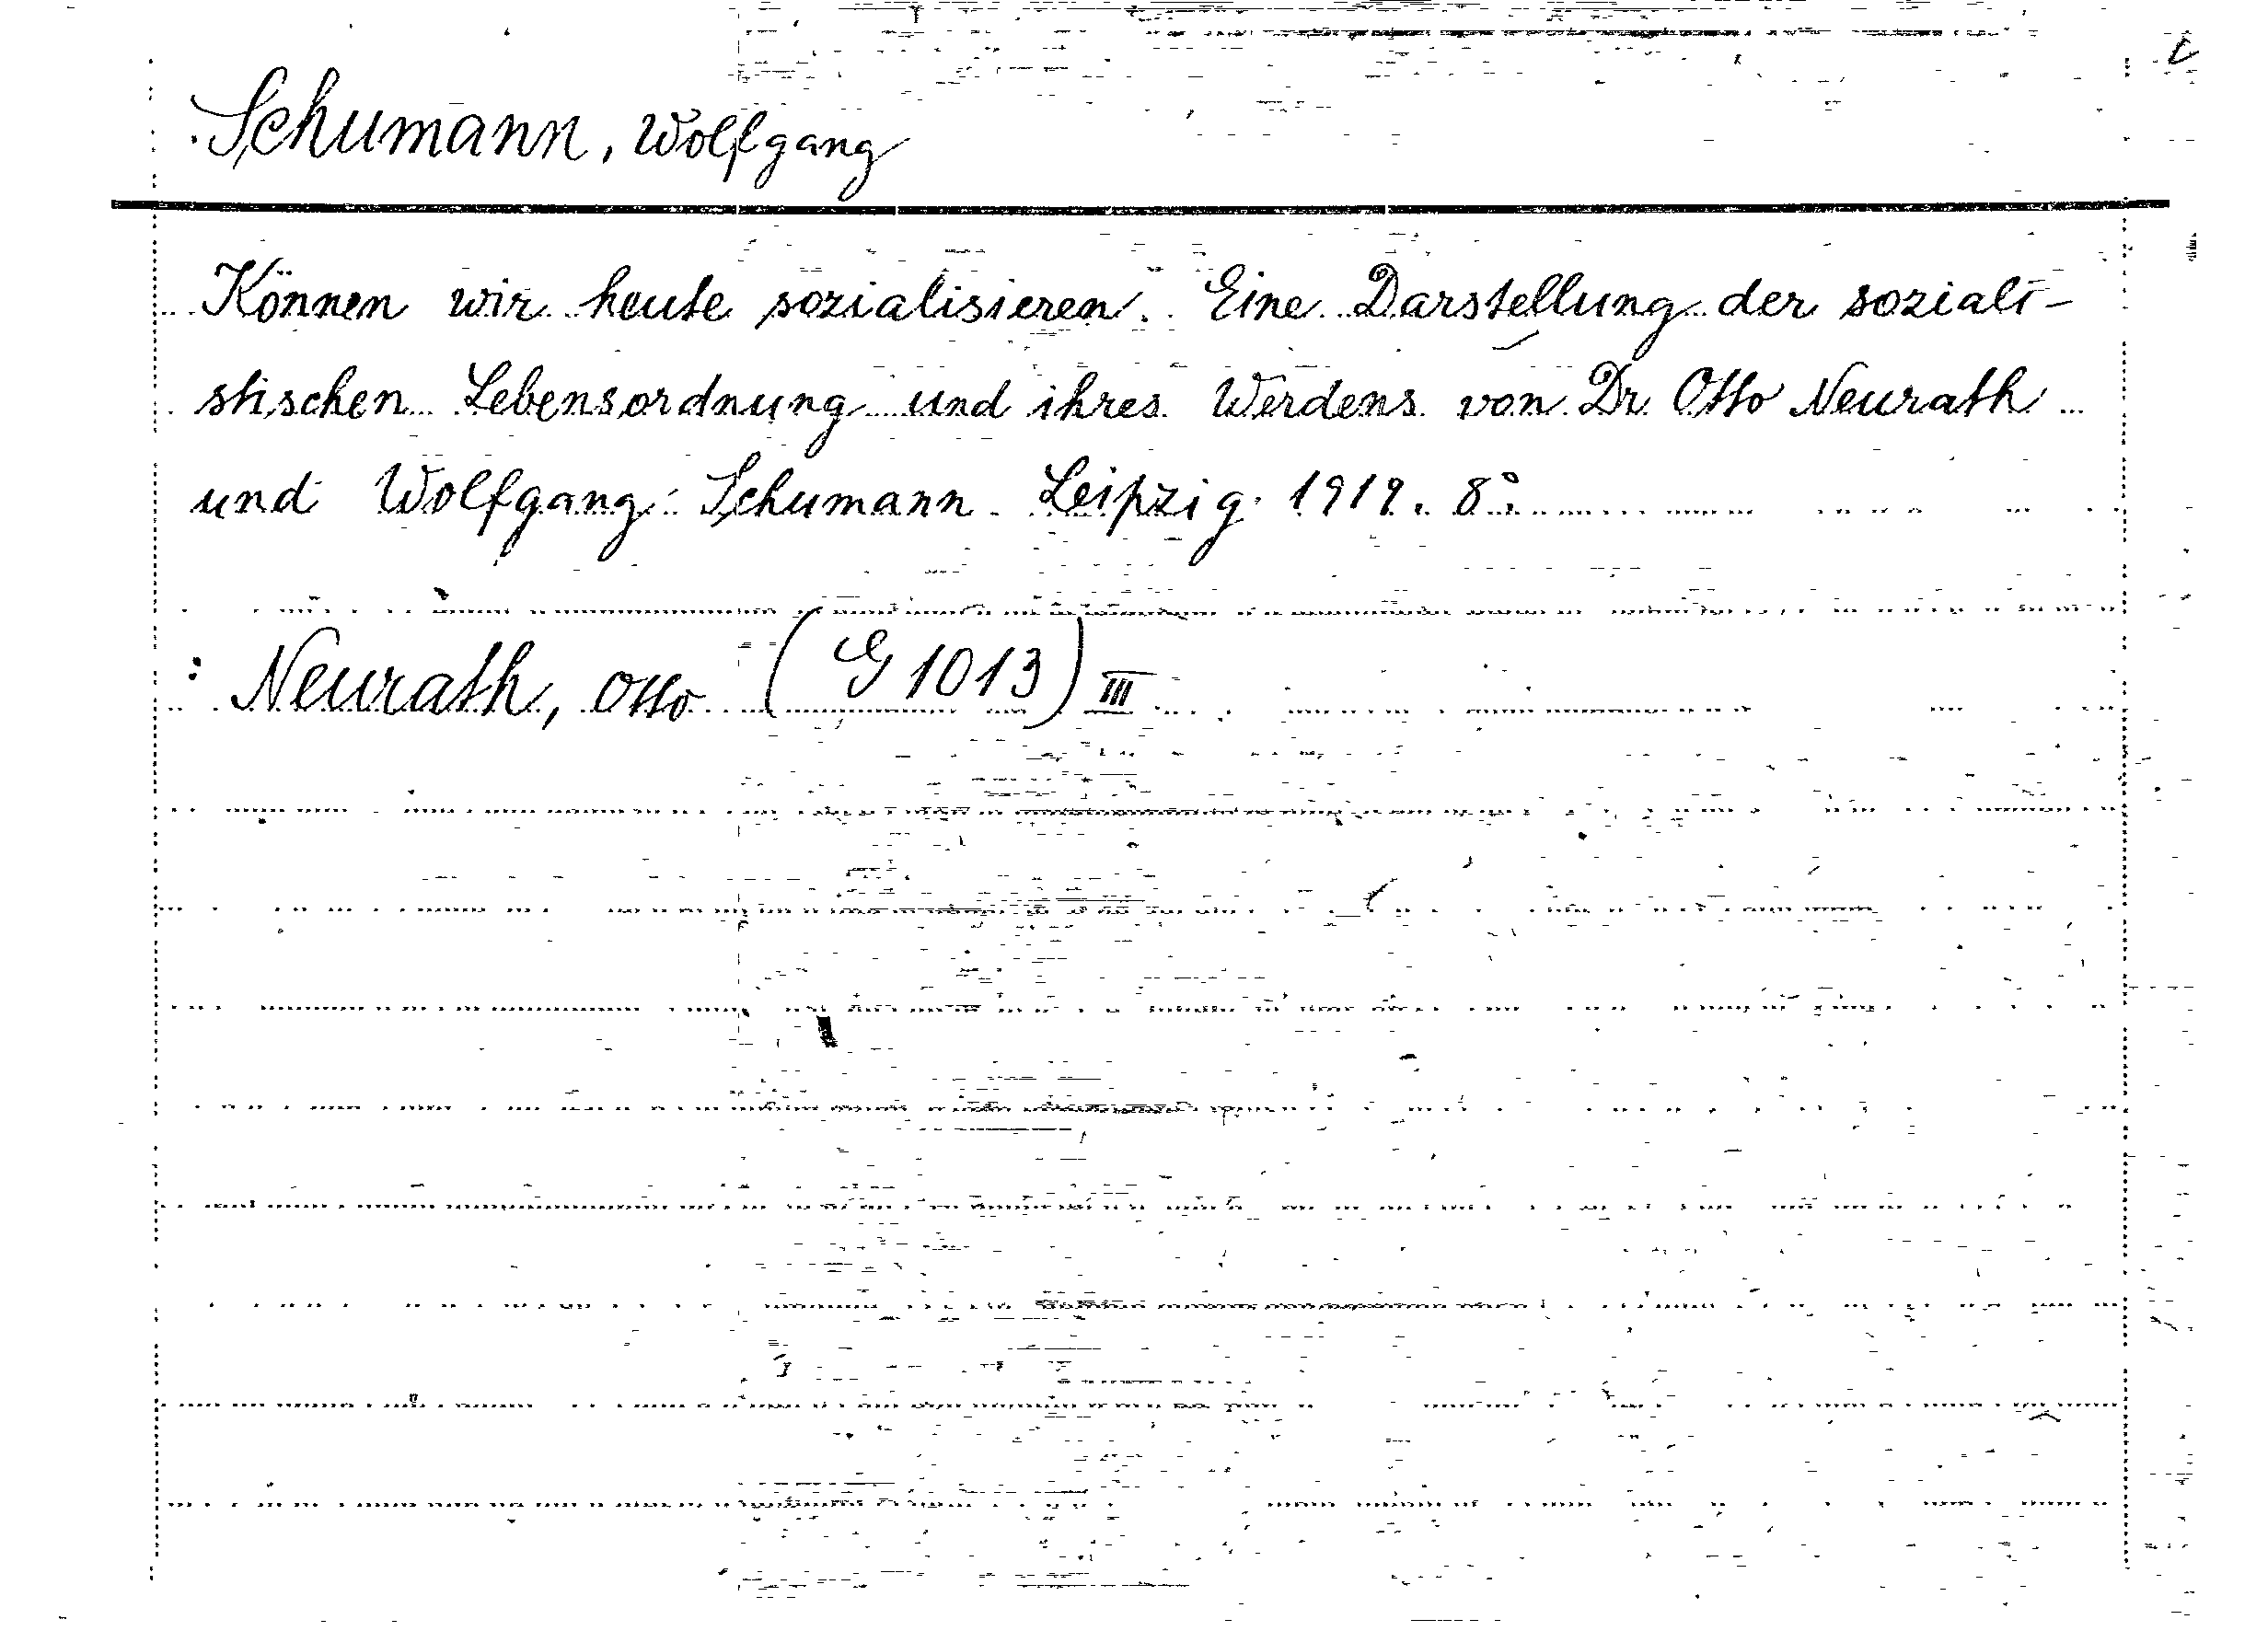 Schumann, Wolfgang
Können wir heute sozialisieren. Eine Darstellung der soziali-
stischen Lebensordnung und ihres Werdens von Dr. Otto Neurath
und Wolfgang Schumann. Leipzig. 1919. 8°.
: Neurath, Otto (G 1013) III